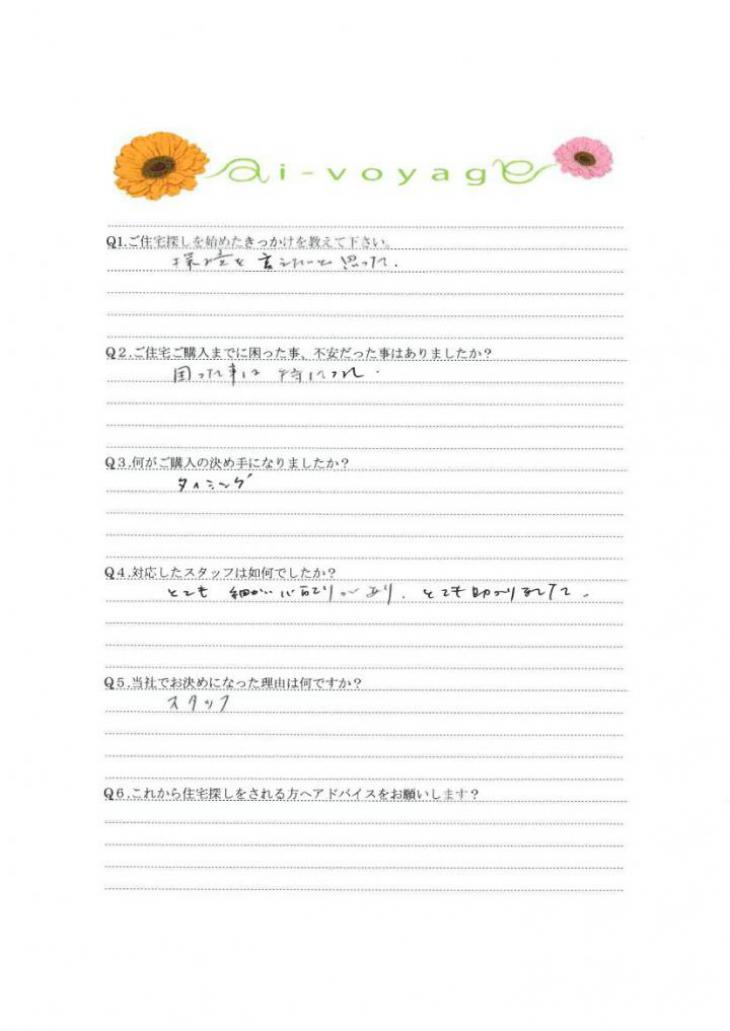 ai-voyage
Q1.ご住宅探しを始めたきっかけを教えて下さい。
環境を変えたいと思って.
Q2.ご住宅ご購入までに困った事、不安だった事はありましたか?
困った事は 特になし.
Q3.何がご購入の決め手になりましたか?
タイミング
Q4.対応したスタッフは如何でしたか?
とても 細かい心配りがあり、とても助かりました.
Q5.当社でお決めになった理由は何ですか?
スタッフ
Q6.これから住宅探しをされる方へアドバイスをお願いします?